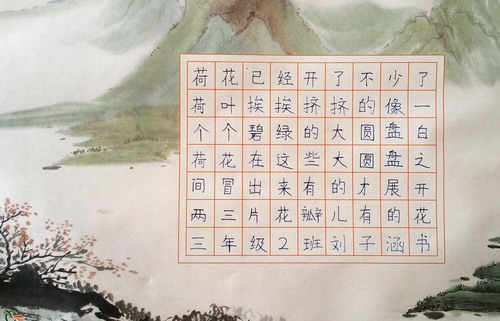 荷花已经开了不少了
荷叶挨挨挤挤的像一
个个碧绿的大圆盘白
荷花在这些大圆盘之
间冒出来有的才展开
两三片花瓣儿有的花
三年级2班刘子涵书